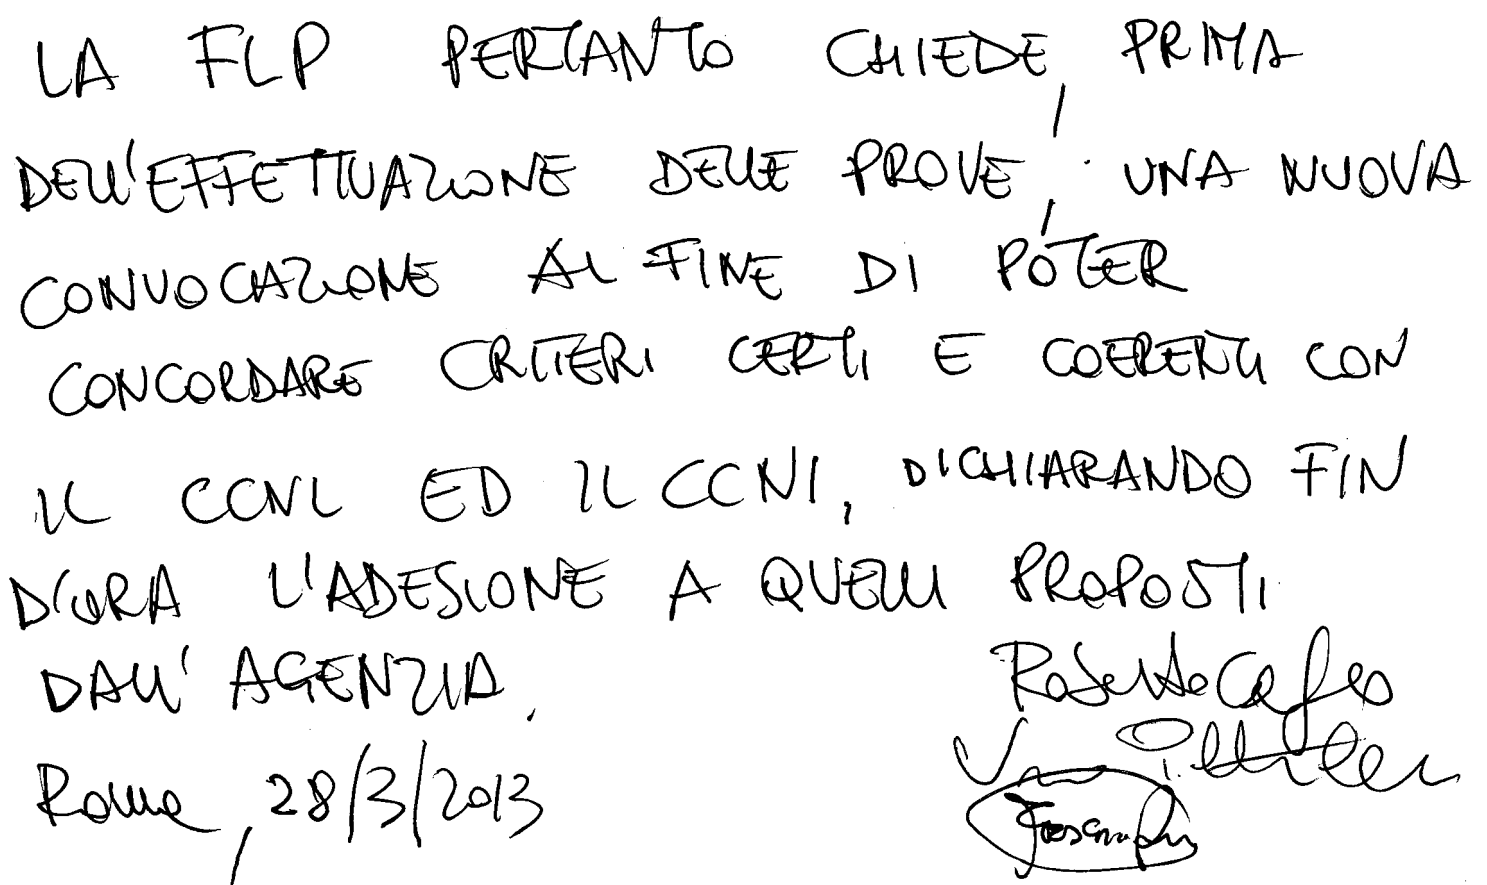 LA FLP PERTANTO CHIEDE, PRIMA
DELL'EFFETTUAZIONE DELLE PROVE, UNA NUOVA
CONVOCAZIONE AL FINE DI POTER
CONCORDARE CRITERI CERTI E COERENTI CON
IL CCNL ED IL CCNI, DICHIARANDO FIN
D'ORA L'ADESIONE A QUELLI PROPOSTI
DALL'AGENZIA.
Roma, 28/3/2013